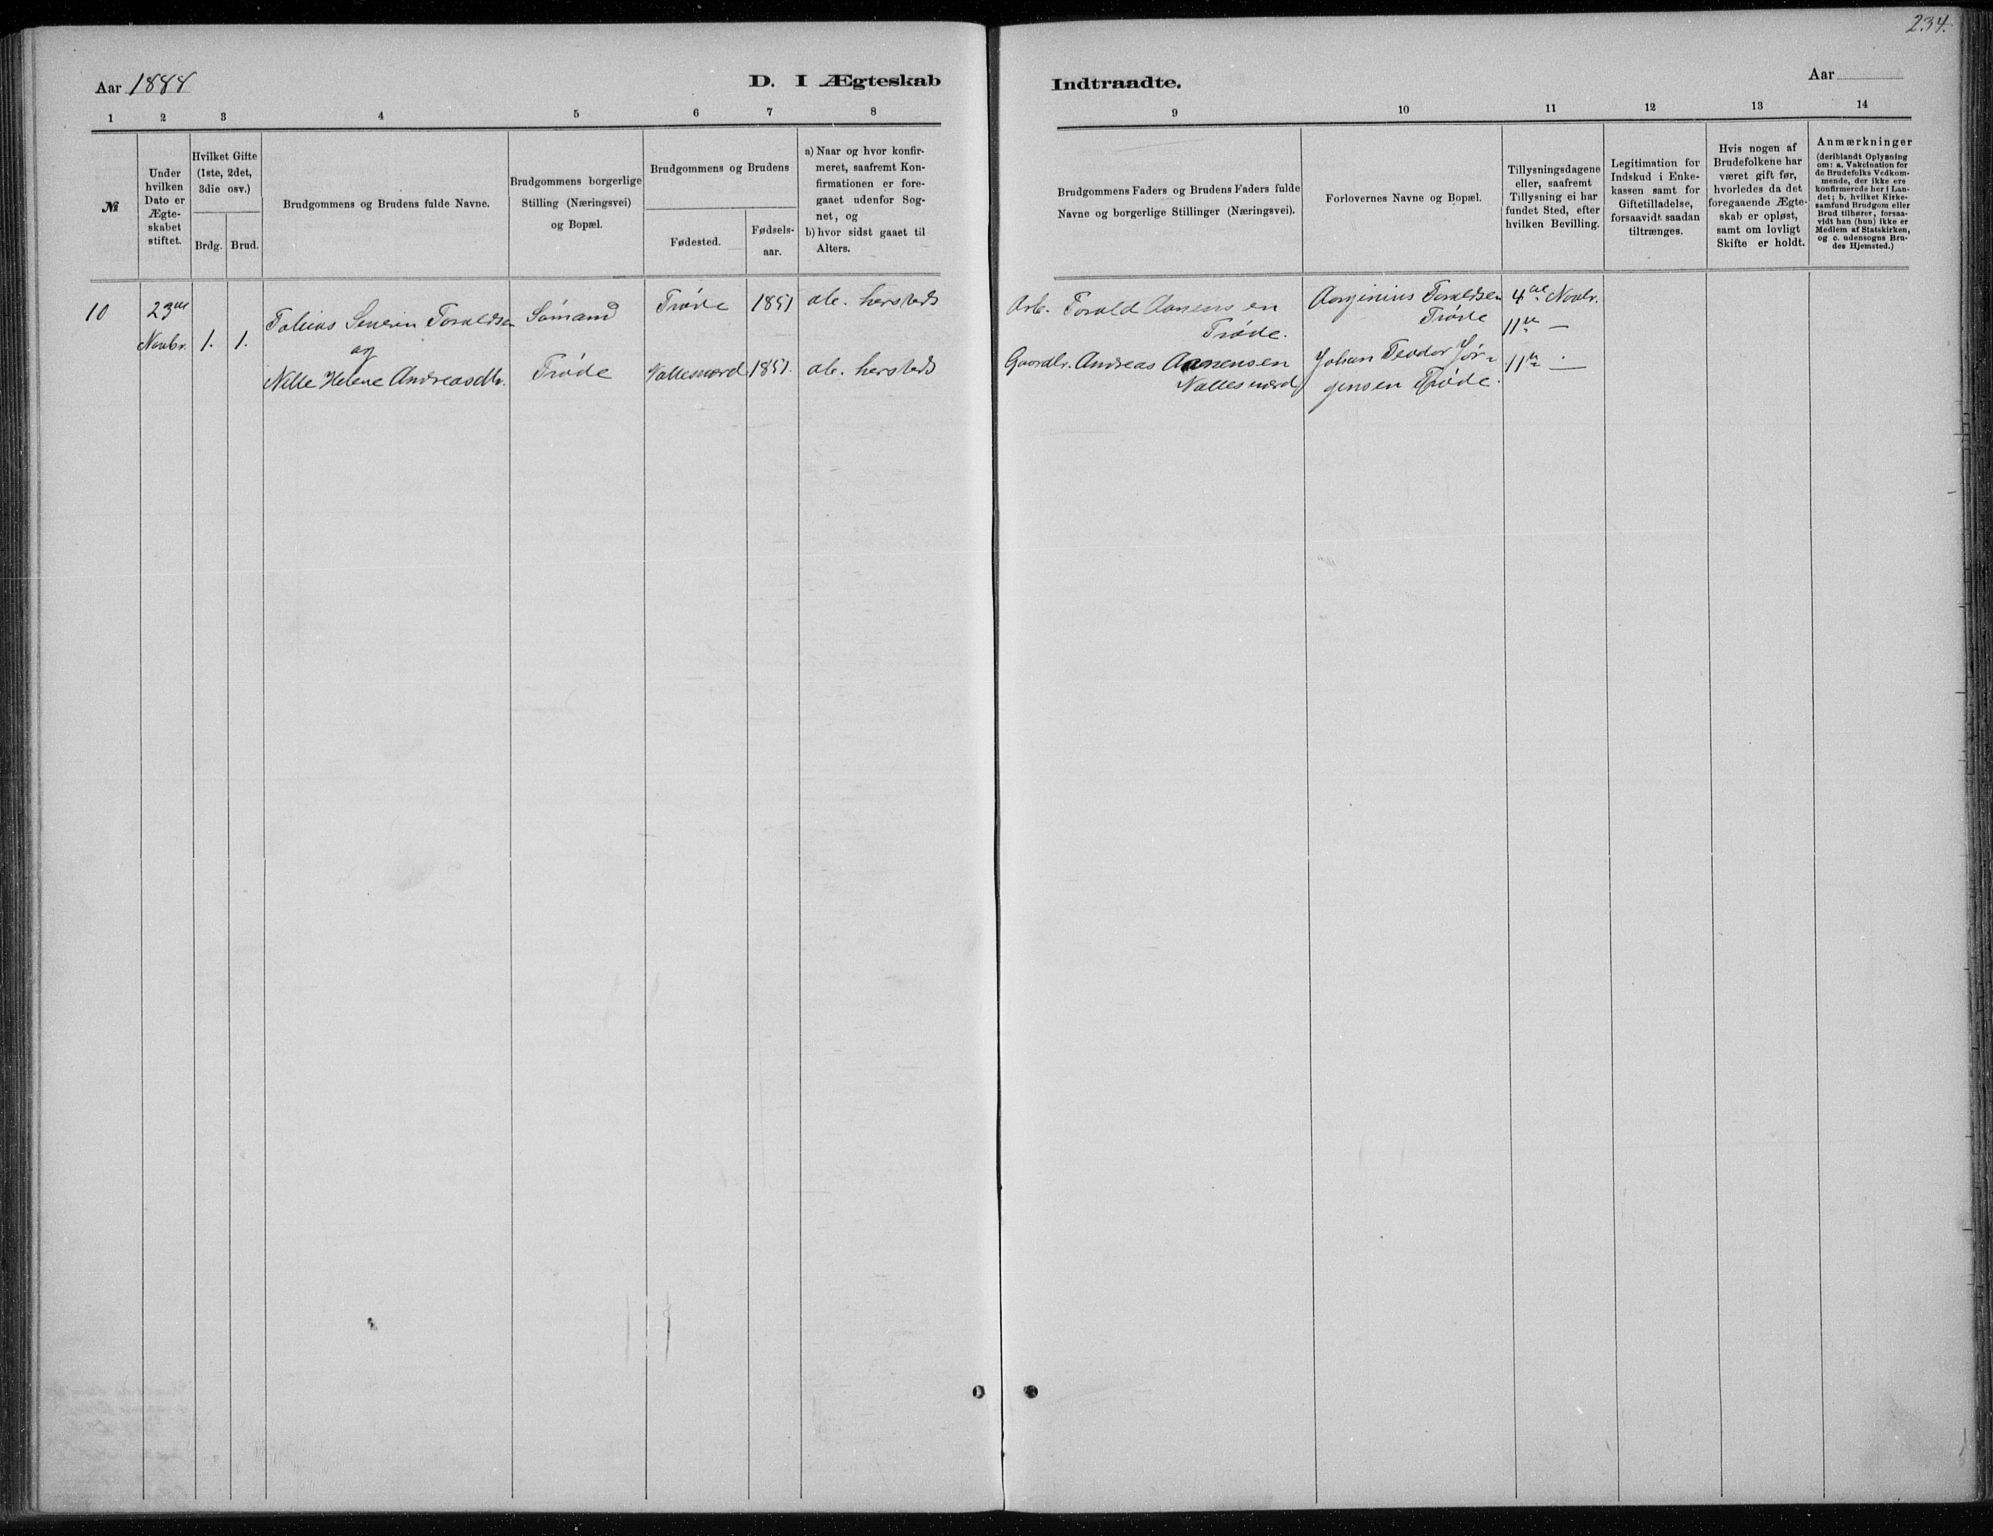 234.
Aar 1888
D. I Ægteskab
Indtraadte.
Aar
1 2 3 4 5 6 7 8
9 10 11 12 13 14
№
Under
hvilken
Dato er
Ægte-
skabet
stiftet.
Hvilket Gifte
(1ste, 2det,
3die osv.)
Brdg. Brud.
Brudgommens og Brudens fulde Navne.
Brudgommens borgerlige
Stilling (Næringsvei)
og Bopæl.
Brudgommens og Brudens
Fødested.
Fødsels-
aar.
a) Naar og hvor konfir-
meret, saafremt Kon-
firmationen er fore-
gaaet udenfor Sog-
net, og
b) hvor sidst gaaet til
Alters.
Brudgommens Faders og Brudens Faders fulde
Navne og borgerlige Stillinger (Næringsvei).
Forlovernes Navne og Bopæl.
Tillysningsdagene
eller, saafremt
Tillysning ei har
fundet Sted, efter
hvilken Bevilling.
Legitimation for
Indskud i Enke-
kassen samt for
Giftetilladelse,
forsaavidt saadan
tiltrænges.
Hvis nogen af
Brudefolkene har
været gift før,
hvorledes da det
foregaaende Ægte-
skab er opløst,
samt om lovligt
Skifte er holdt.
Anmærkninger
(deriblandt Oplysning
om: a. Vakcination for
de Brudefolks Vedkom-
mende, der ikke ere
konfirmerede her i Lan-
det; b. hvilket Kirke-
samfund Brudgom eller
Brud tilhører, forsaa-
vidt han (hun) ikke er
Medlem af Statskirken,
og c. udensogns Bru-
des Hjemsted.)
10
23de
Novbr.
1. 1.
Tobias Severin Toraldsen
og
Nille Helene Andreasdtr.
Sømand
Trøde
Trøde 1851
Vallesværd 1851.
ab. hersteds
ab. hersteds
Arb. Torald Aanensen
Trøde.
Gaardbr. Andreas Aanensen
Vallesværd
Toraldsen
Trøde
Johan Teodor Jør-
gensen Trøde.
4de Novbr.
11te —
11te —